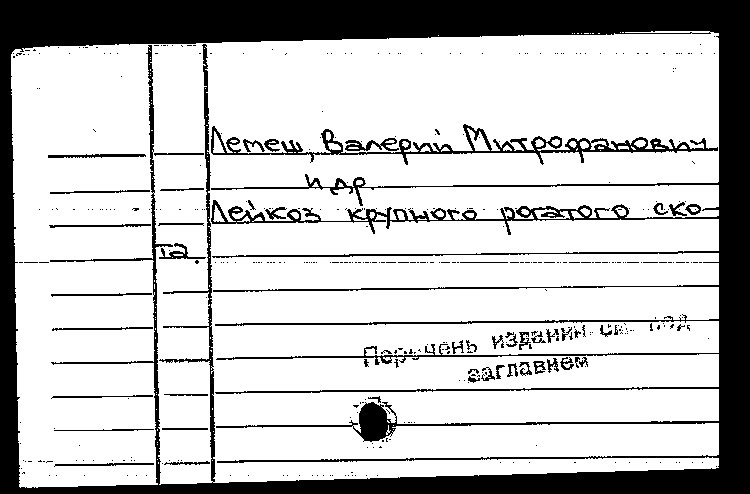 Лемеш, Валерий Митрофанович
и др.
Лейкоз крупного рогатого ско-
та.
Перечень изданий см. под
заглавием